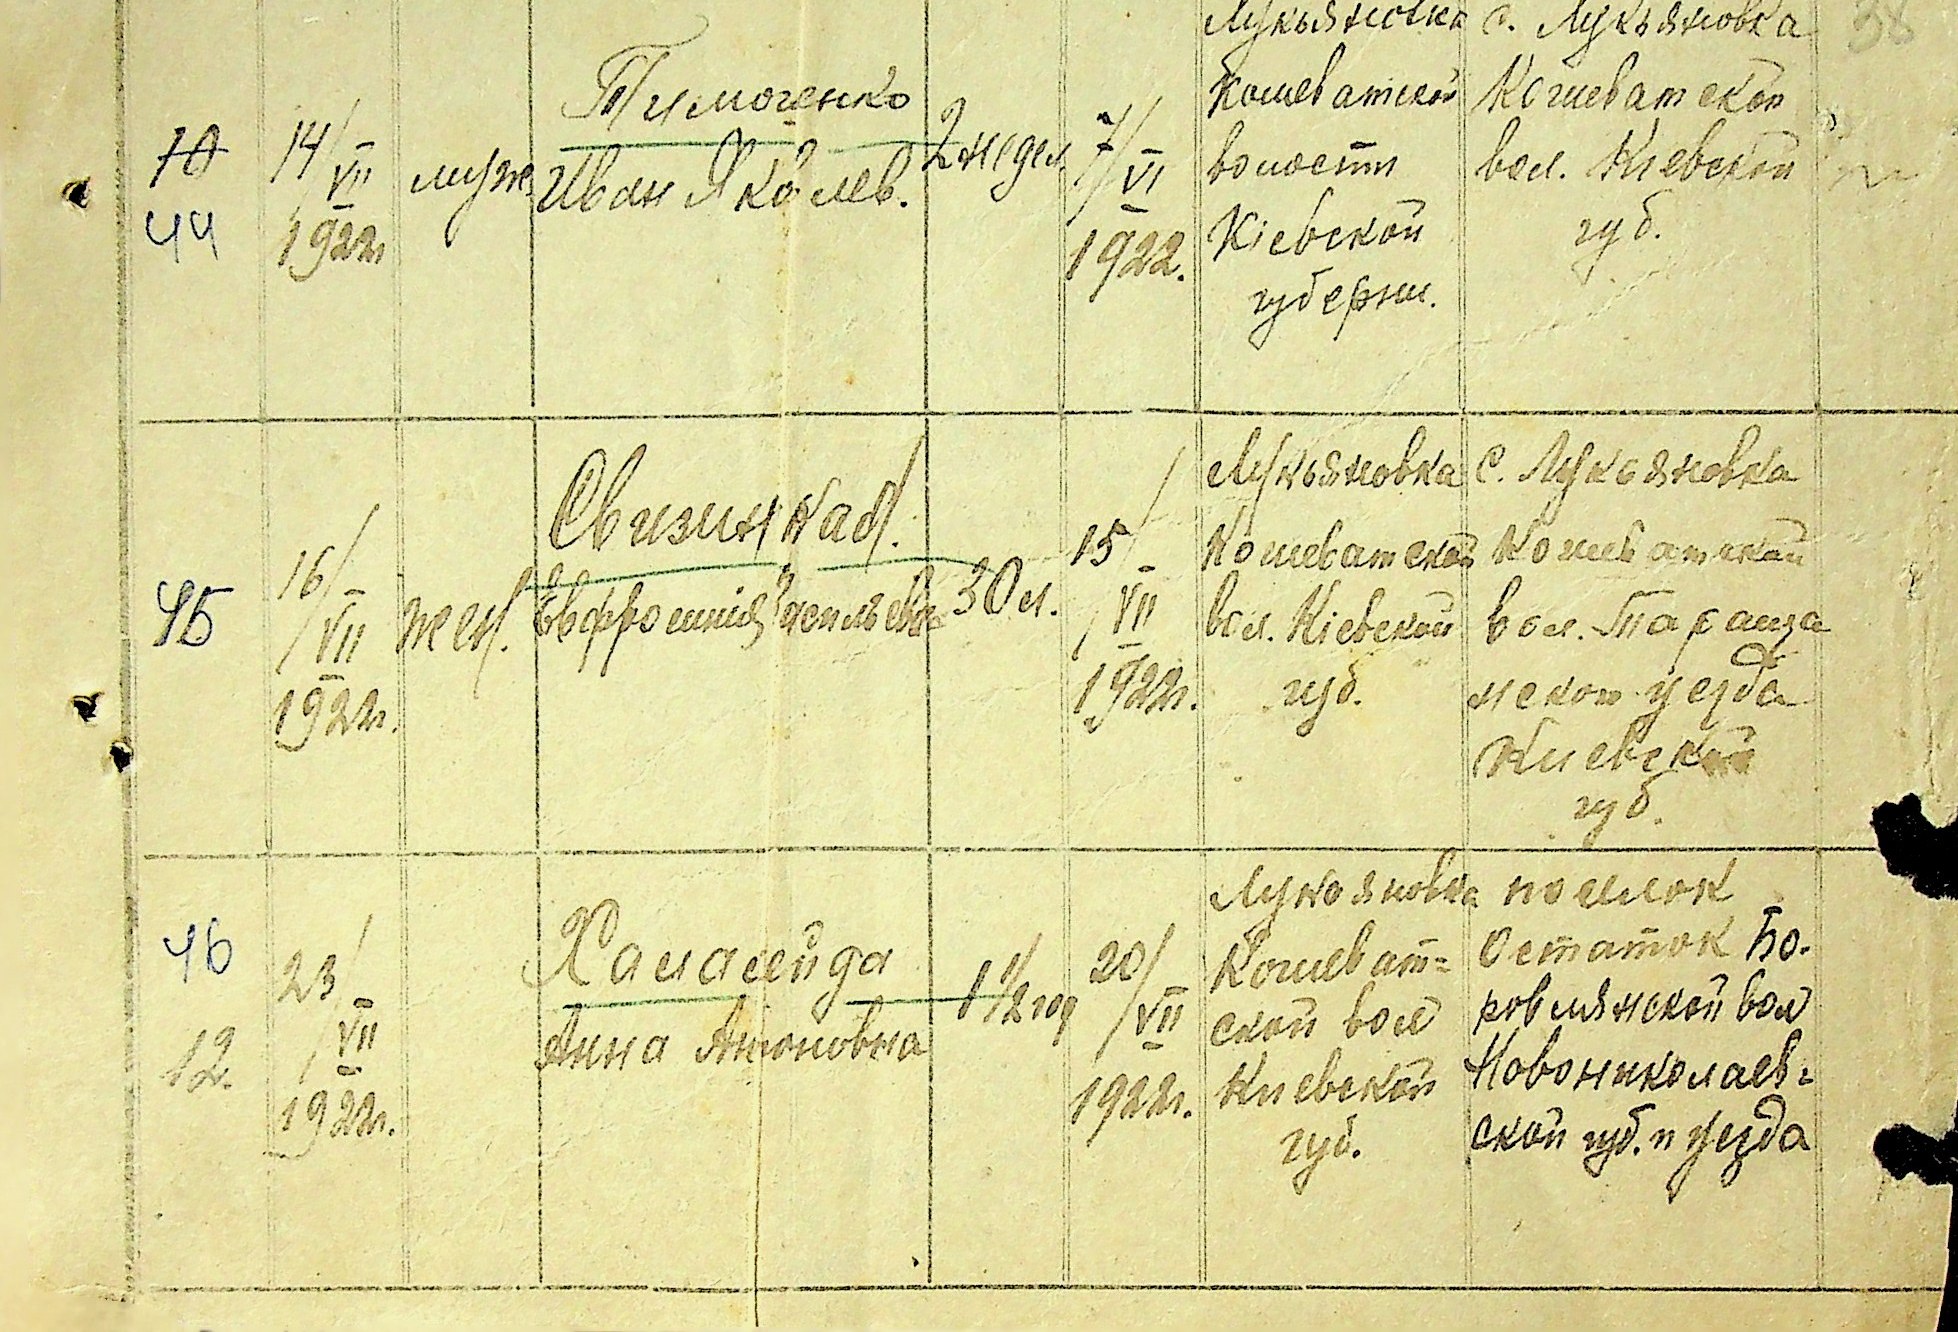 38
Лукьяновка
Кошеватской
волости
Кіевской
губернии.
с. Лукьяновка
Кошеватской
вол. Киевской
губ.
10
44
14/VII
1922г
муж.
Тимоченко
Иван Яковлев.
2 недел
7/VI
1922.
45
16/VII
1922г.
жен.
Свизинская.
Евфросинія Васильева
30 л.
15/VII
1922г.
Лукьяновка
Кошеватской
вол. Кіевской
губ.
с. Лукьяновка
Кошеватской
вол. Тараща
нского уезда
Киевской
губ.
46
12.
23/VII
1922г.
Халамейда
Анна Антоновна
1 1/2 год
20/VII
1922г.
Лукьяновка
Кошеват=
ской вол
Киевской
губ.
поселок
Остаток Бо-
ровлянской вол
Новониколаев-
ской губ. и уезда